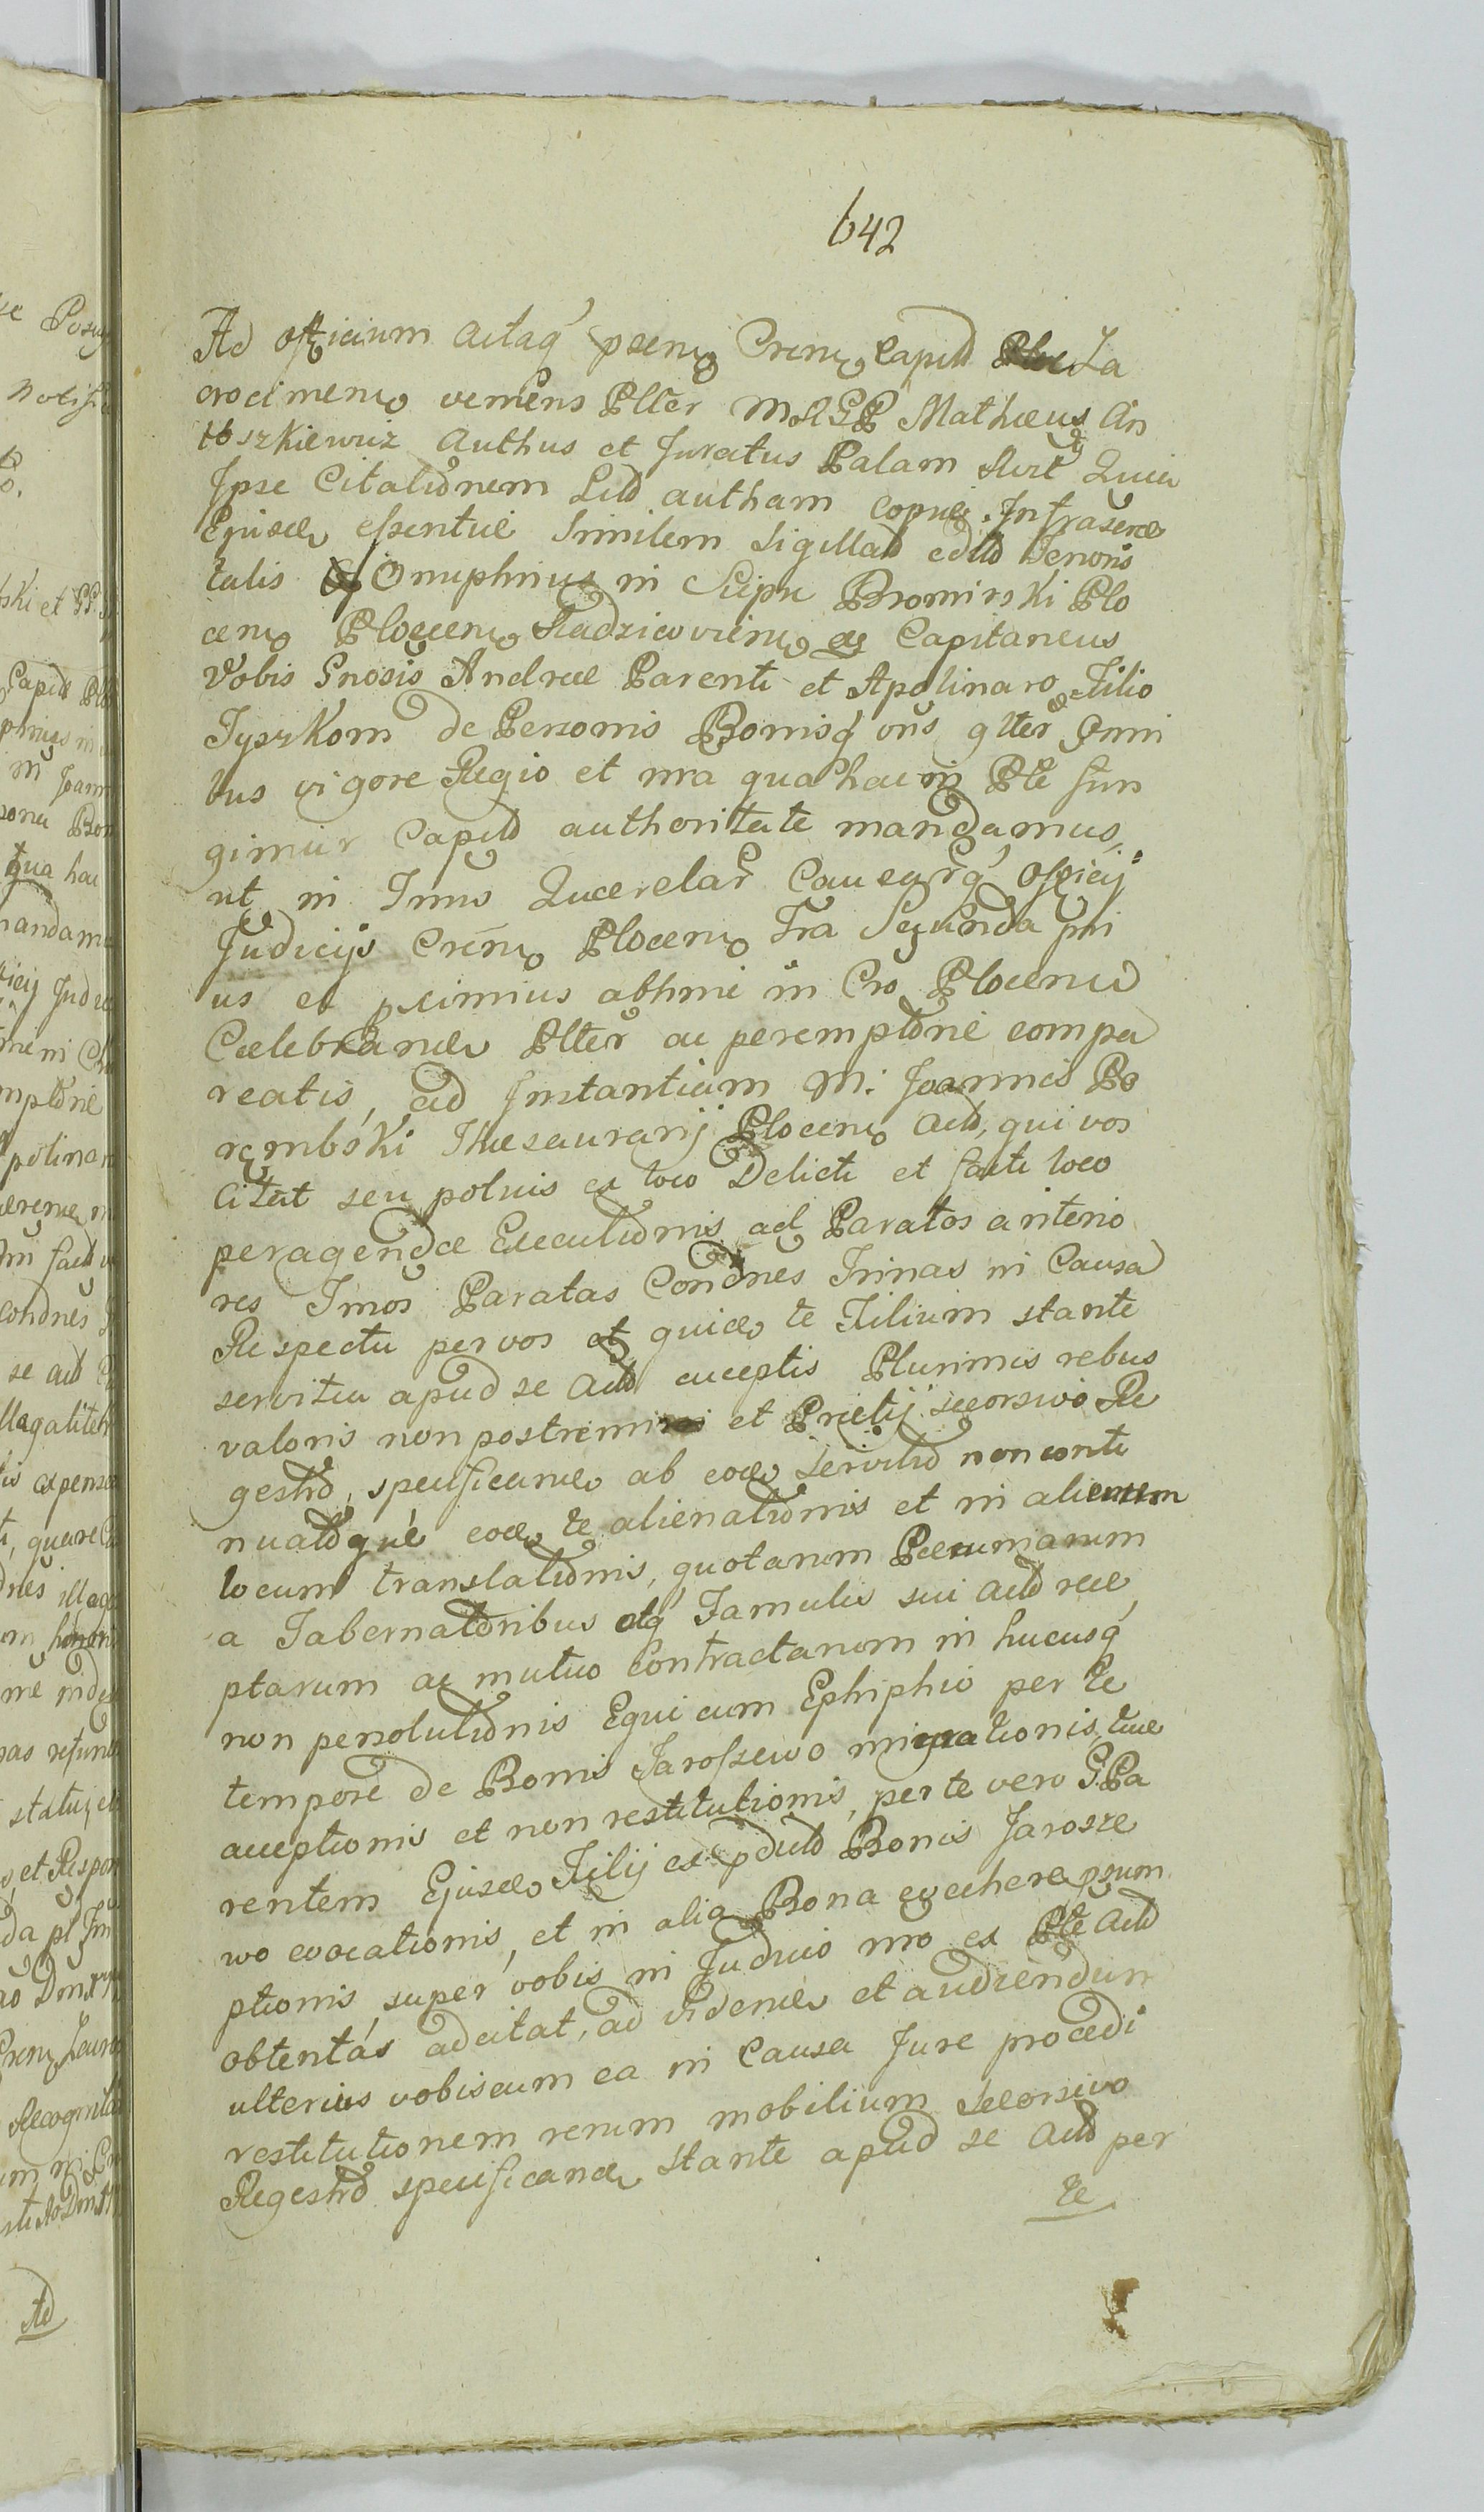 642
Ad officium Actaq̃ psens Crens Capitt Za
crocimens veniens Pltter MAGB Mathæus An
toszkiewicz Authus et Juratus Palam Quia
Ipse Citationem Litt autham copiæ Infrascræ
Ejusdæ essentuæ Similem Sigillatt edtt Tenoris
talis Onuphrius in Siepn Bromirski Plo
cens Plocens Radzieoviens Capitaneus
Vobis Gnosis Andreæ Parenti et Apolinaro Filio
Tyszkom de Personis Bonisq̃ vris gltter Omni
bus vigore Regio et nra qua hac in Pte fun
gimur Capitt authoritate mandamus,
ut in Tmis Quærelar̃ Causarq̃ Officij
Judicijs Crens Plocens Fra Secunda pri
us et pximius abhinc in Cro Plocensi
Cælebrandæ Pltter ac peremptorie compa
reatis, ad Instantiam M: Joannis Po
rembski Thesaurarij Plocens Actt, qui vos
Citat seu potuis ex loco Delicti et facti loco
peragendæ Executionis ad Paratos anterio
res Tmos Paratas Condnes Trinas in Causa
Respectu per vos et quidæ te Filium stante
servitiu apud se Actt acceptis Plurimis rebus
valoris non postremi et Prætij seorsivo Re
gestro, specificand ab eodæ Servitio non conti
nuatoque eodæ te alienationis et in alienum
locum translationis, quotarum Pecuniarum
a Tabernatoribus atq̃ Famulis sui Actt rece
ptarum ac mutuo Contractarum in hucusq̃
non persolutionis Equi cum Ephiphio per te
tempore de Bonis Jaroszewo migrationis tuæ
acceptionis et non restitutionis, per te vero G. Pa
rentem Ejusdæ Filij ex pdictt Bonis Jarosze
wo evocationis, et in alia Bona evehere psum
ptionis, super vobis in Judicio nro ex Pte Actt
obtentas adcitat, ad Videndæ et audiendum
ulterius vobiscum ea in Causa Jure procedi
restitutionem rerum mobilium seorsivo
Regestro specificandæ stante apud se Actt per
te